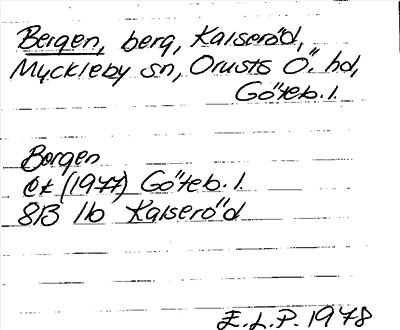 Bergen, berg, Kalseröd,
Myckleby sn, Orusts Ö. hd,
Göteb. l.
Borgen
Ek (1977) Göteb. l.
8B 1b Kalseröd
E.L.P. 1978